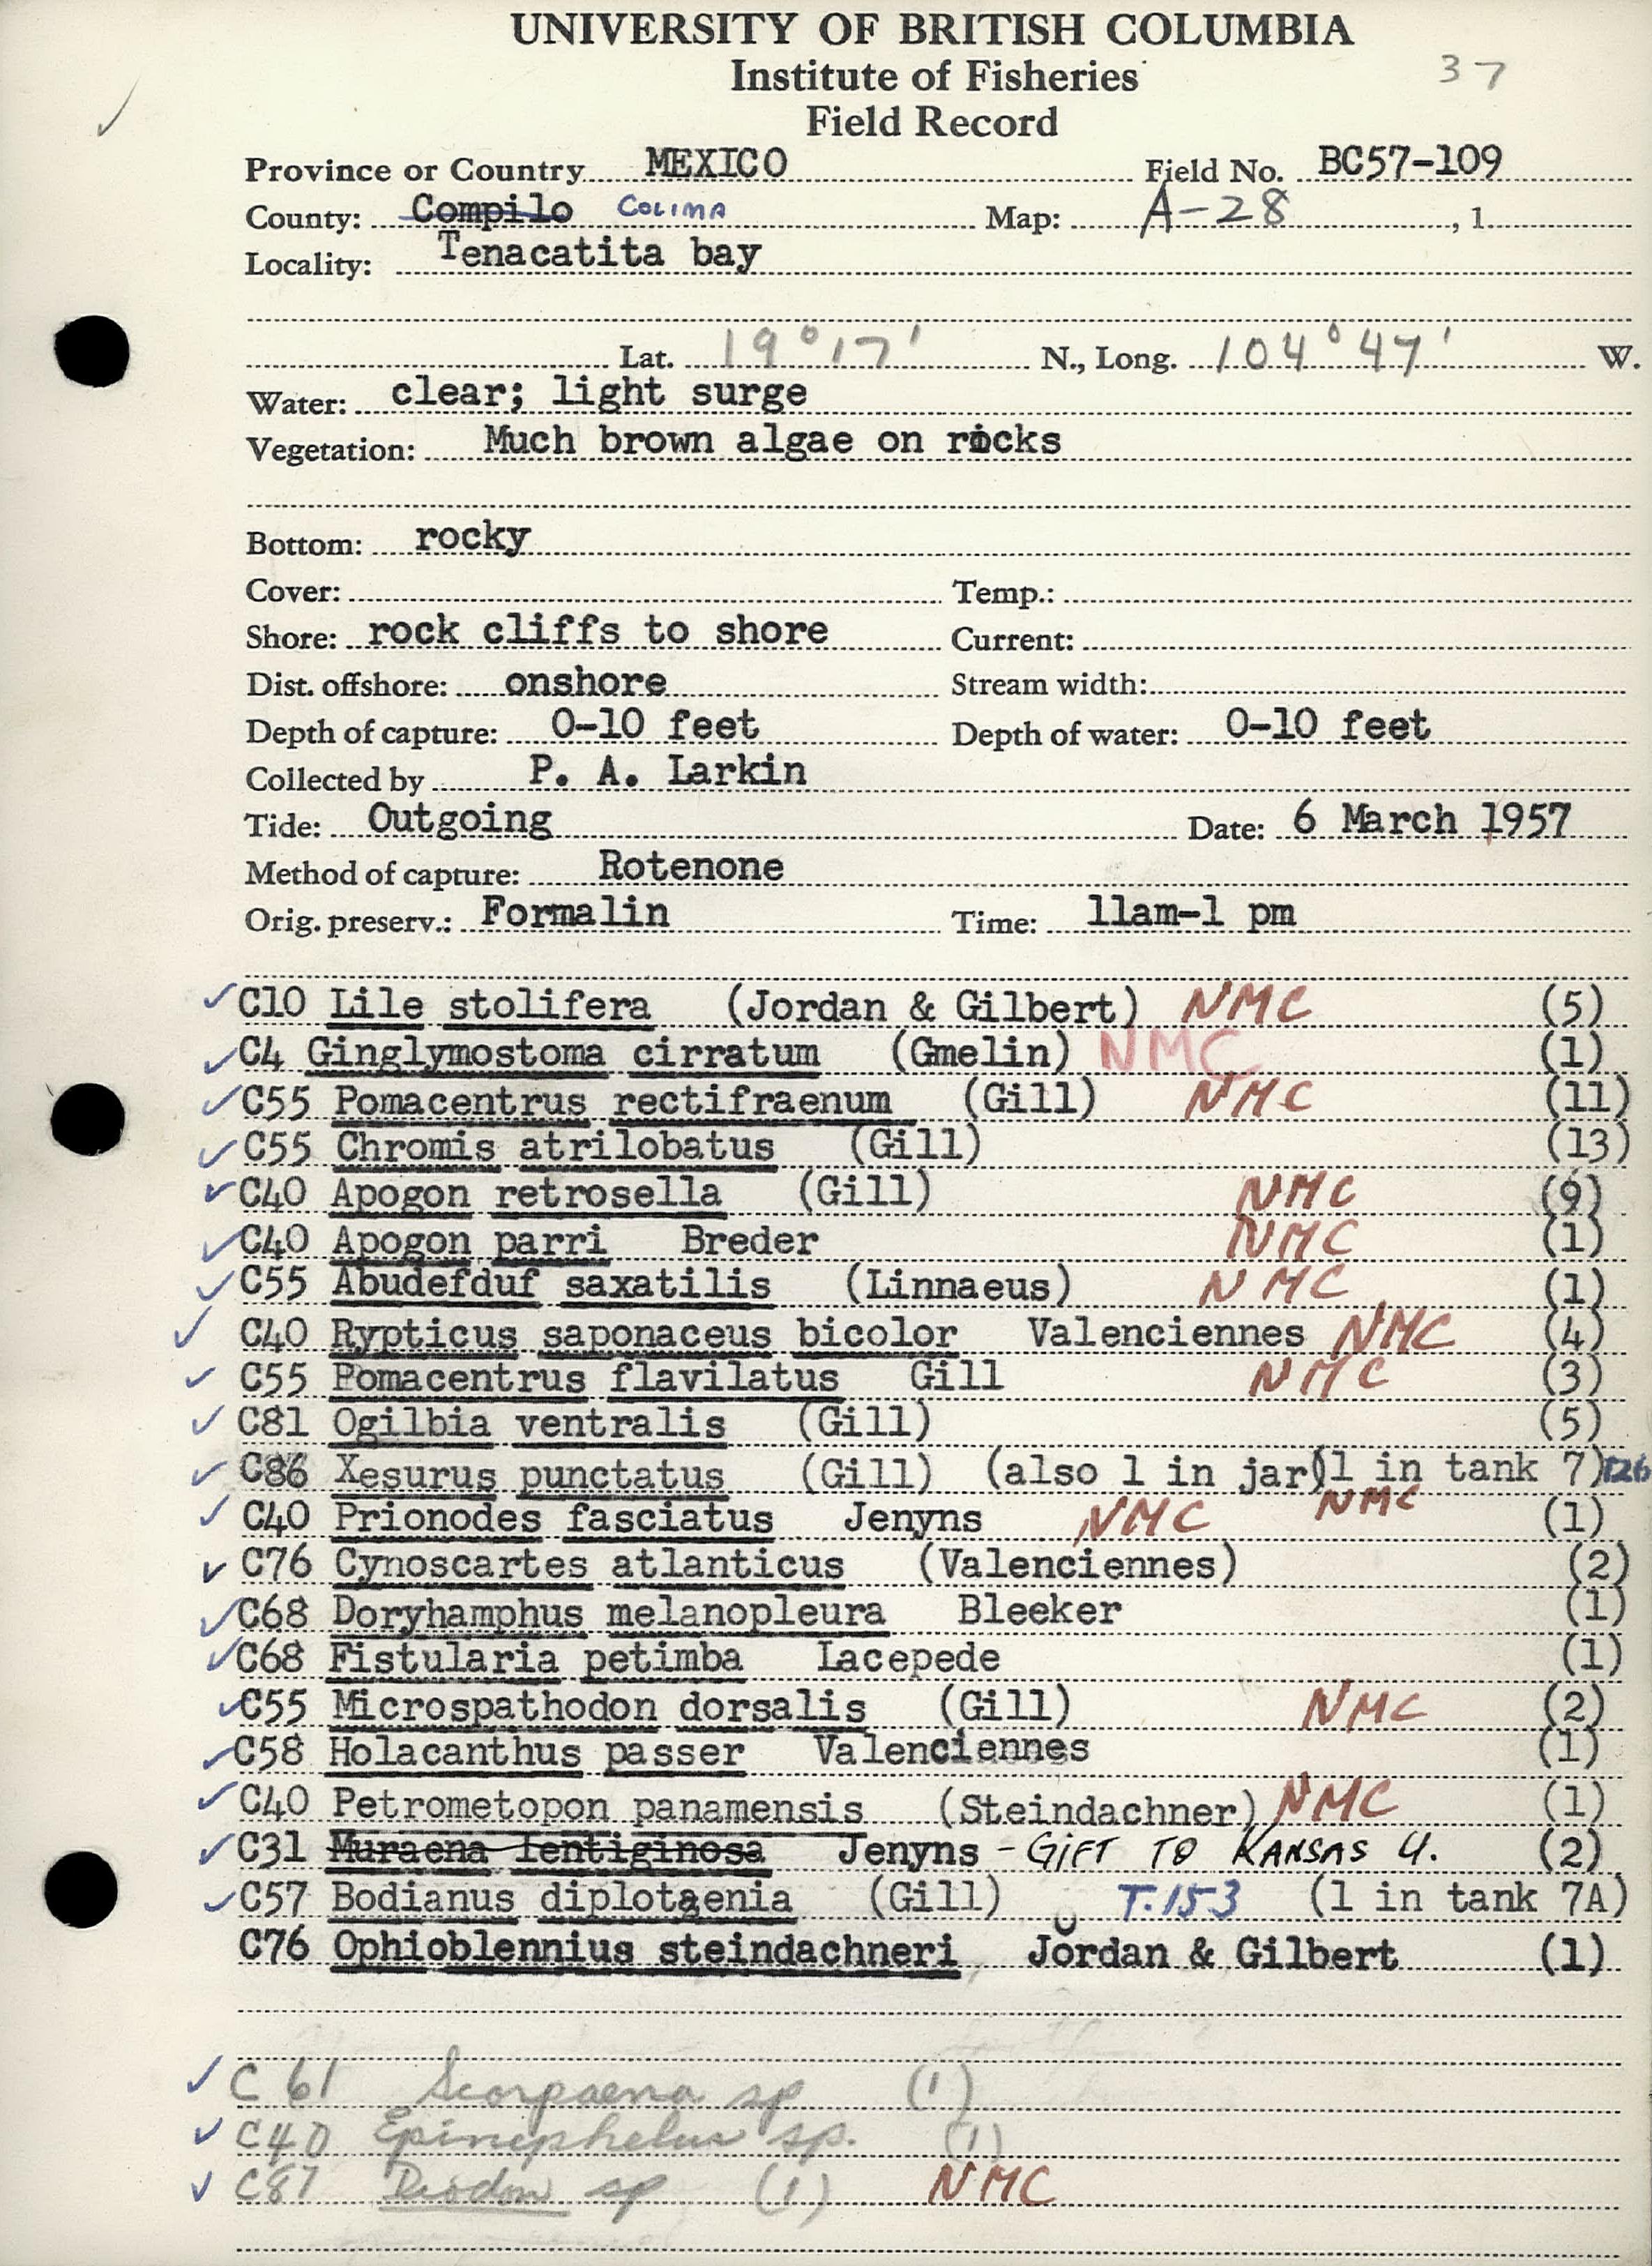 UNIVERSITY OF BRITISH COLUMBIA
Institute of Fisheries 37
Field Record
Province or Country MEXICO Field No. BC57-109
County: Compilo COLIMA Map: A-28 , 1
Locality: Tenacatita bay
Lat. 19°17' N., Long. 104°47' W.
Water: clear; light surge
Vegetation: Much brown algae on rocks
Bottom: rocky
Cover: Temp.:
Shore: rock cliffs to shore Current:
Dist. offshore: onshore Stream width:
Depth of capture: 0-10 feet Depth of water: 0-10 feet
Collected by P. A. Larkin
Tide: Outgoing Date: 6 March 1957
Method of capture: Rotenone
Orig. preserv.: Formalin Time: 11am-1 pm
✓ C10 Lile stolifera (Jordan & Gilbert) NMC (5)
✓ C4 Ginglymostoma cirratum (Gmelin) NMC (1)
✓ C55 Pomacentrus rectifraenum (Gill) NMC (11)
✓ C55 Chromis atrilobatus (Gill) (13)
✓ C40 Apogon retrosella (Gill) NMC (9)
✓ C40 Apogon parri Breder NMC (1)
✓ C55 Abudefduf saxatilis (Linnaeus) NMC (1)
✓ C40 Rypticus saponaceus bicolor Valenciennes NMC (4)
✓ C55 Pomacentrus flavilatus Gill NMC (3)
✓ C81 Ogilbia ventralis (Gill) (5)
✓ C86 Xesurus punctatus (Gill) (also 1 in jar)(1 in tank 7) T26
NMC
✓ C40 Prionodes fasciatus Jenyns NMC (1)
✓ C76 Cynoscartes atlanticus (Valenciennes) (2)
✓ C68 Doryhamphus melanopleura Bleeker (1)
✓ C68 Fistularia petimba Lacepede (1)
✓ C55 Microspathodon dorsalis (Gill) NMC (2)
✓ C58 Holacanthus passer Valenciennes (1)
✓ C40 Petrometopon panamensis (Steindachner) NMC (1)
✓ C31 Muraena lentiginosa Jenyns - GIFT TO KANSAS U. (2)
✓ C57 Bodianus diplotaenia (Gill) T.153 (1 in tank 7A)
C76 Ophioblennius steindachneri Jordan & Gilbert (1)
✓ C 61 Scorpaena sp (1)
✓ C40 Epinephelus sp. (1)
✓ C87 Diodon sp (1) NMC